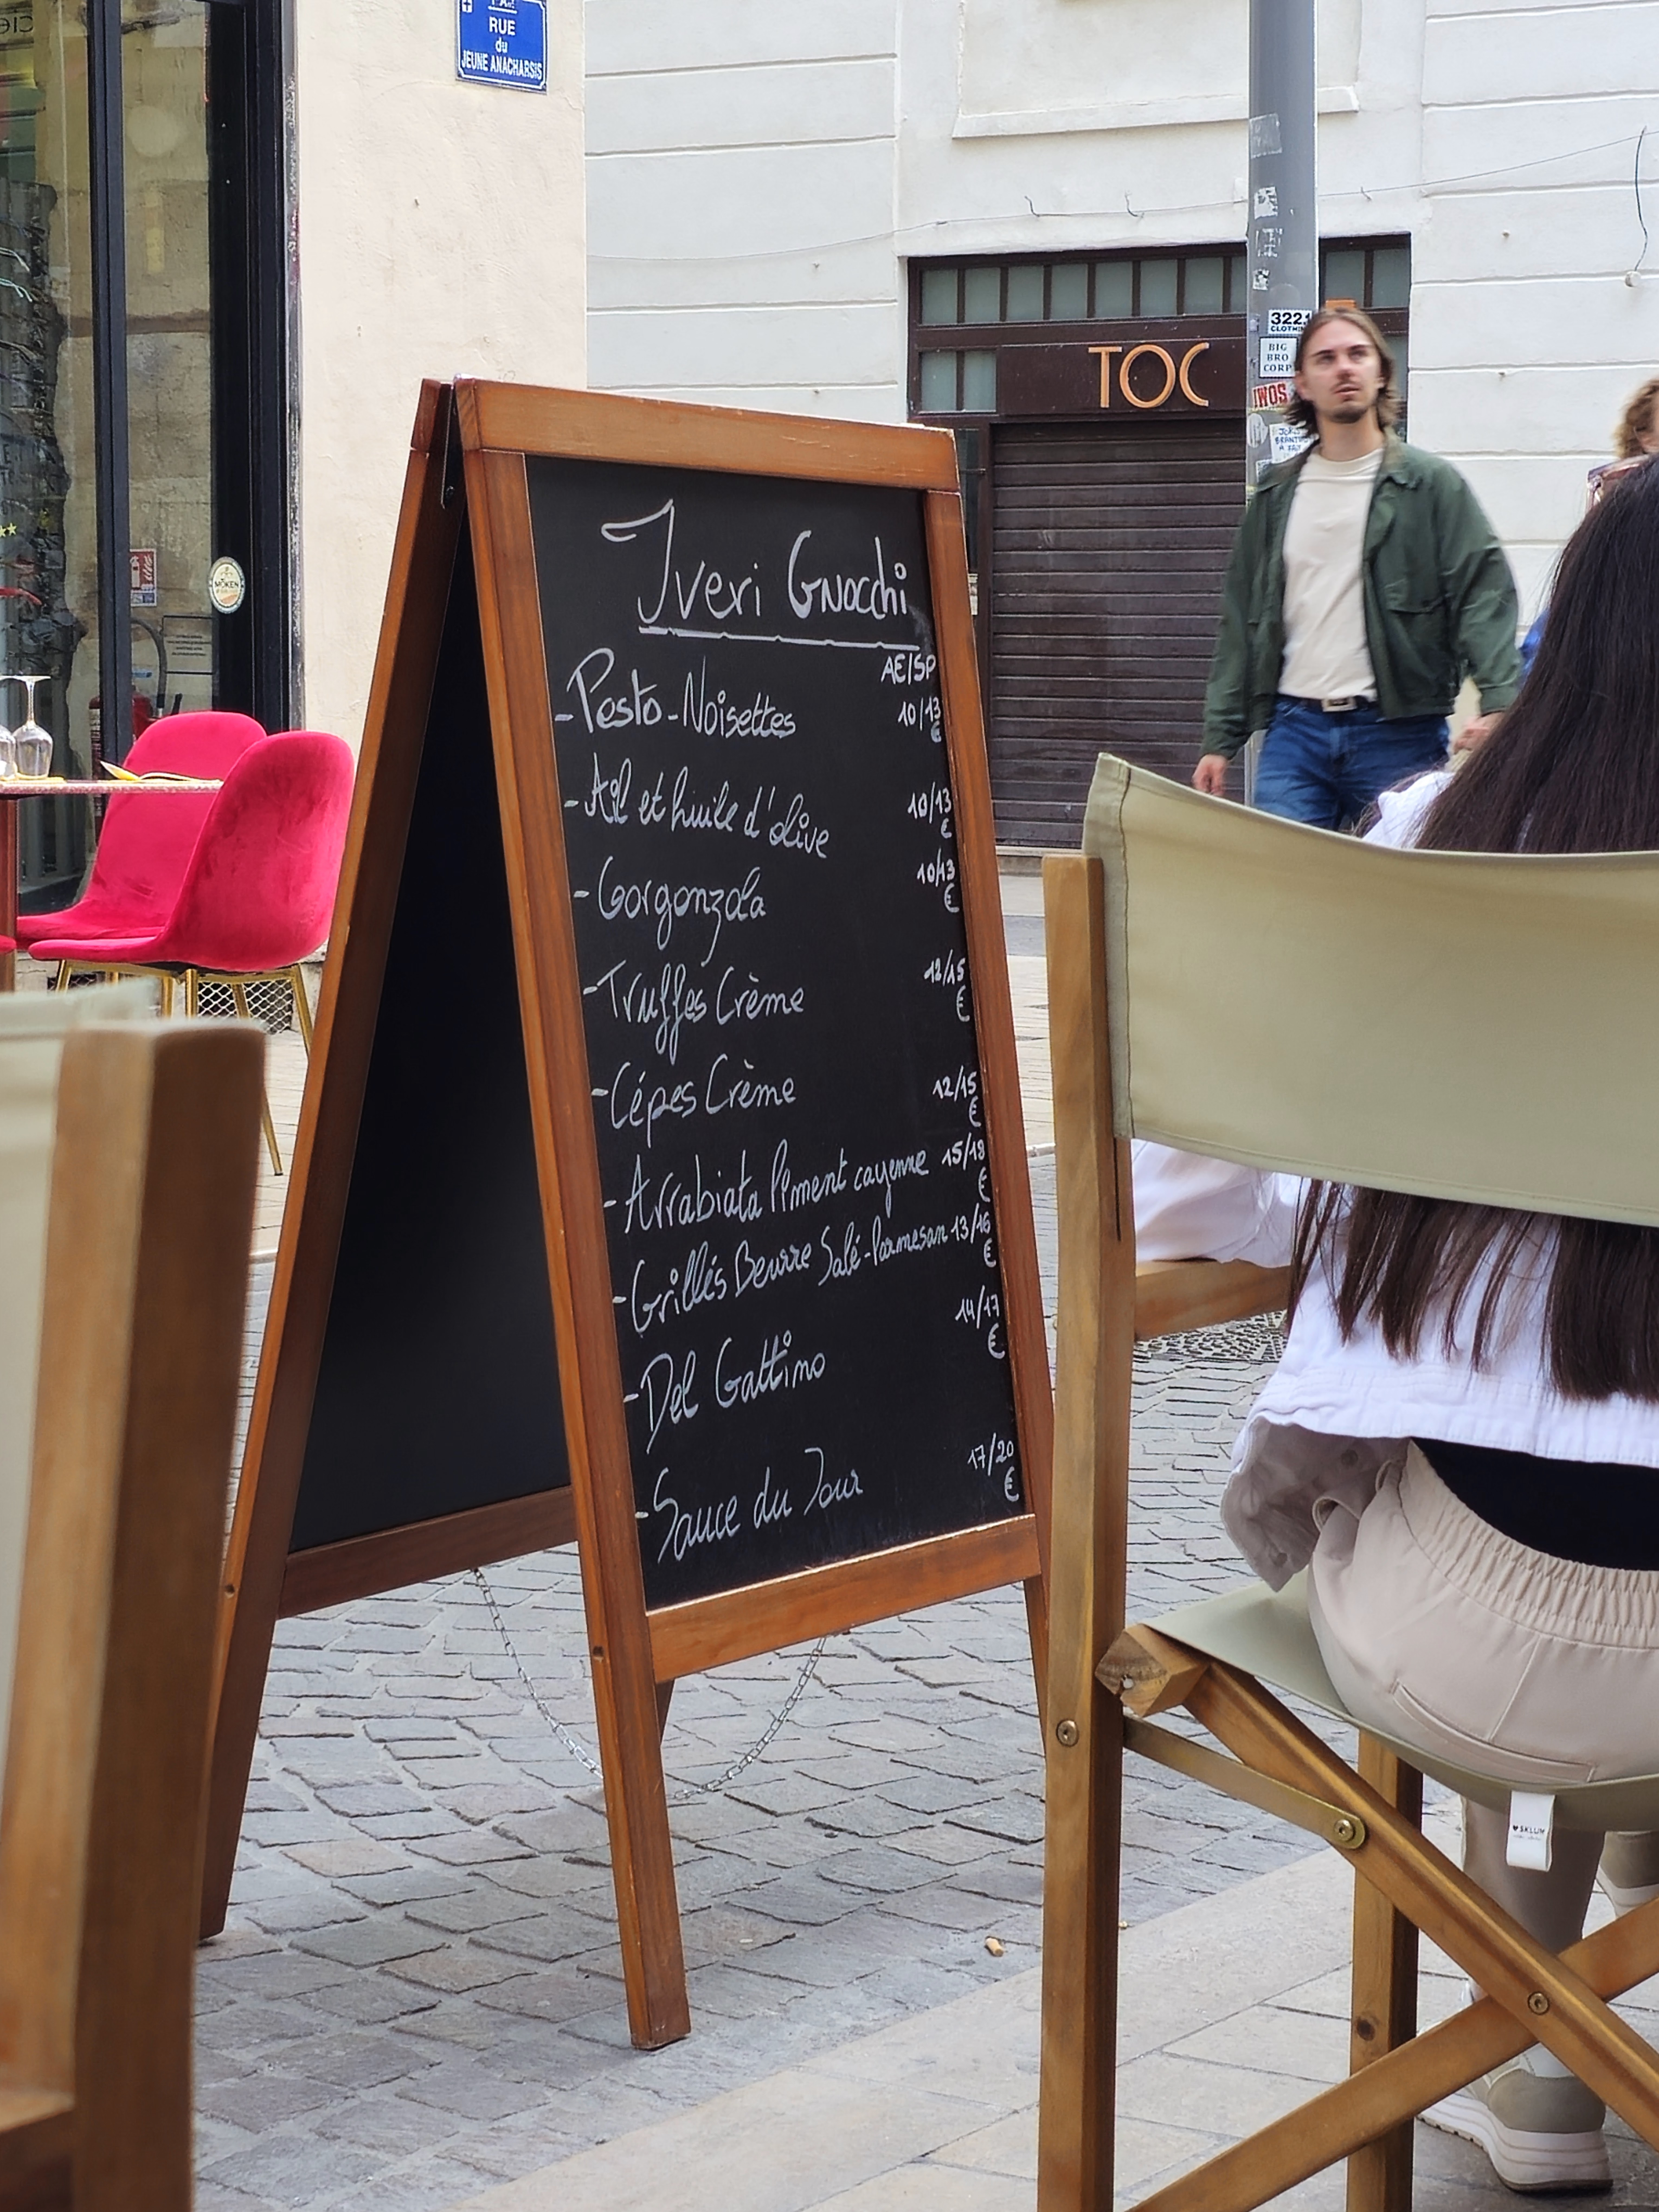 RUE
du
JEUNE ANACHARSIS
TOC
3221
CLOTHING
BIG
BRO
CORP
IWOS
MÖKEN
Iveri Gnocchi
AE/SP
-Pesto-Noisettes 10/13 €
-Ail et huile d'olive 10/13 €
-Gorgonzola 10/13 €
-Truffes Crème 12/15 €
-Cépes Crème 12/15 €
-Arrabiata Piment cayenne 15/18 €
-Grillés Beurre Salé-Parmesan 13/16 €
-Del Gattino 14/17 €
-Sauce du Jour 17/20 €
SKLUM